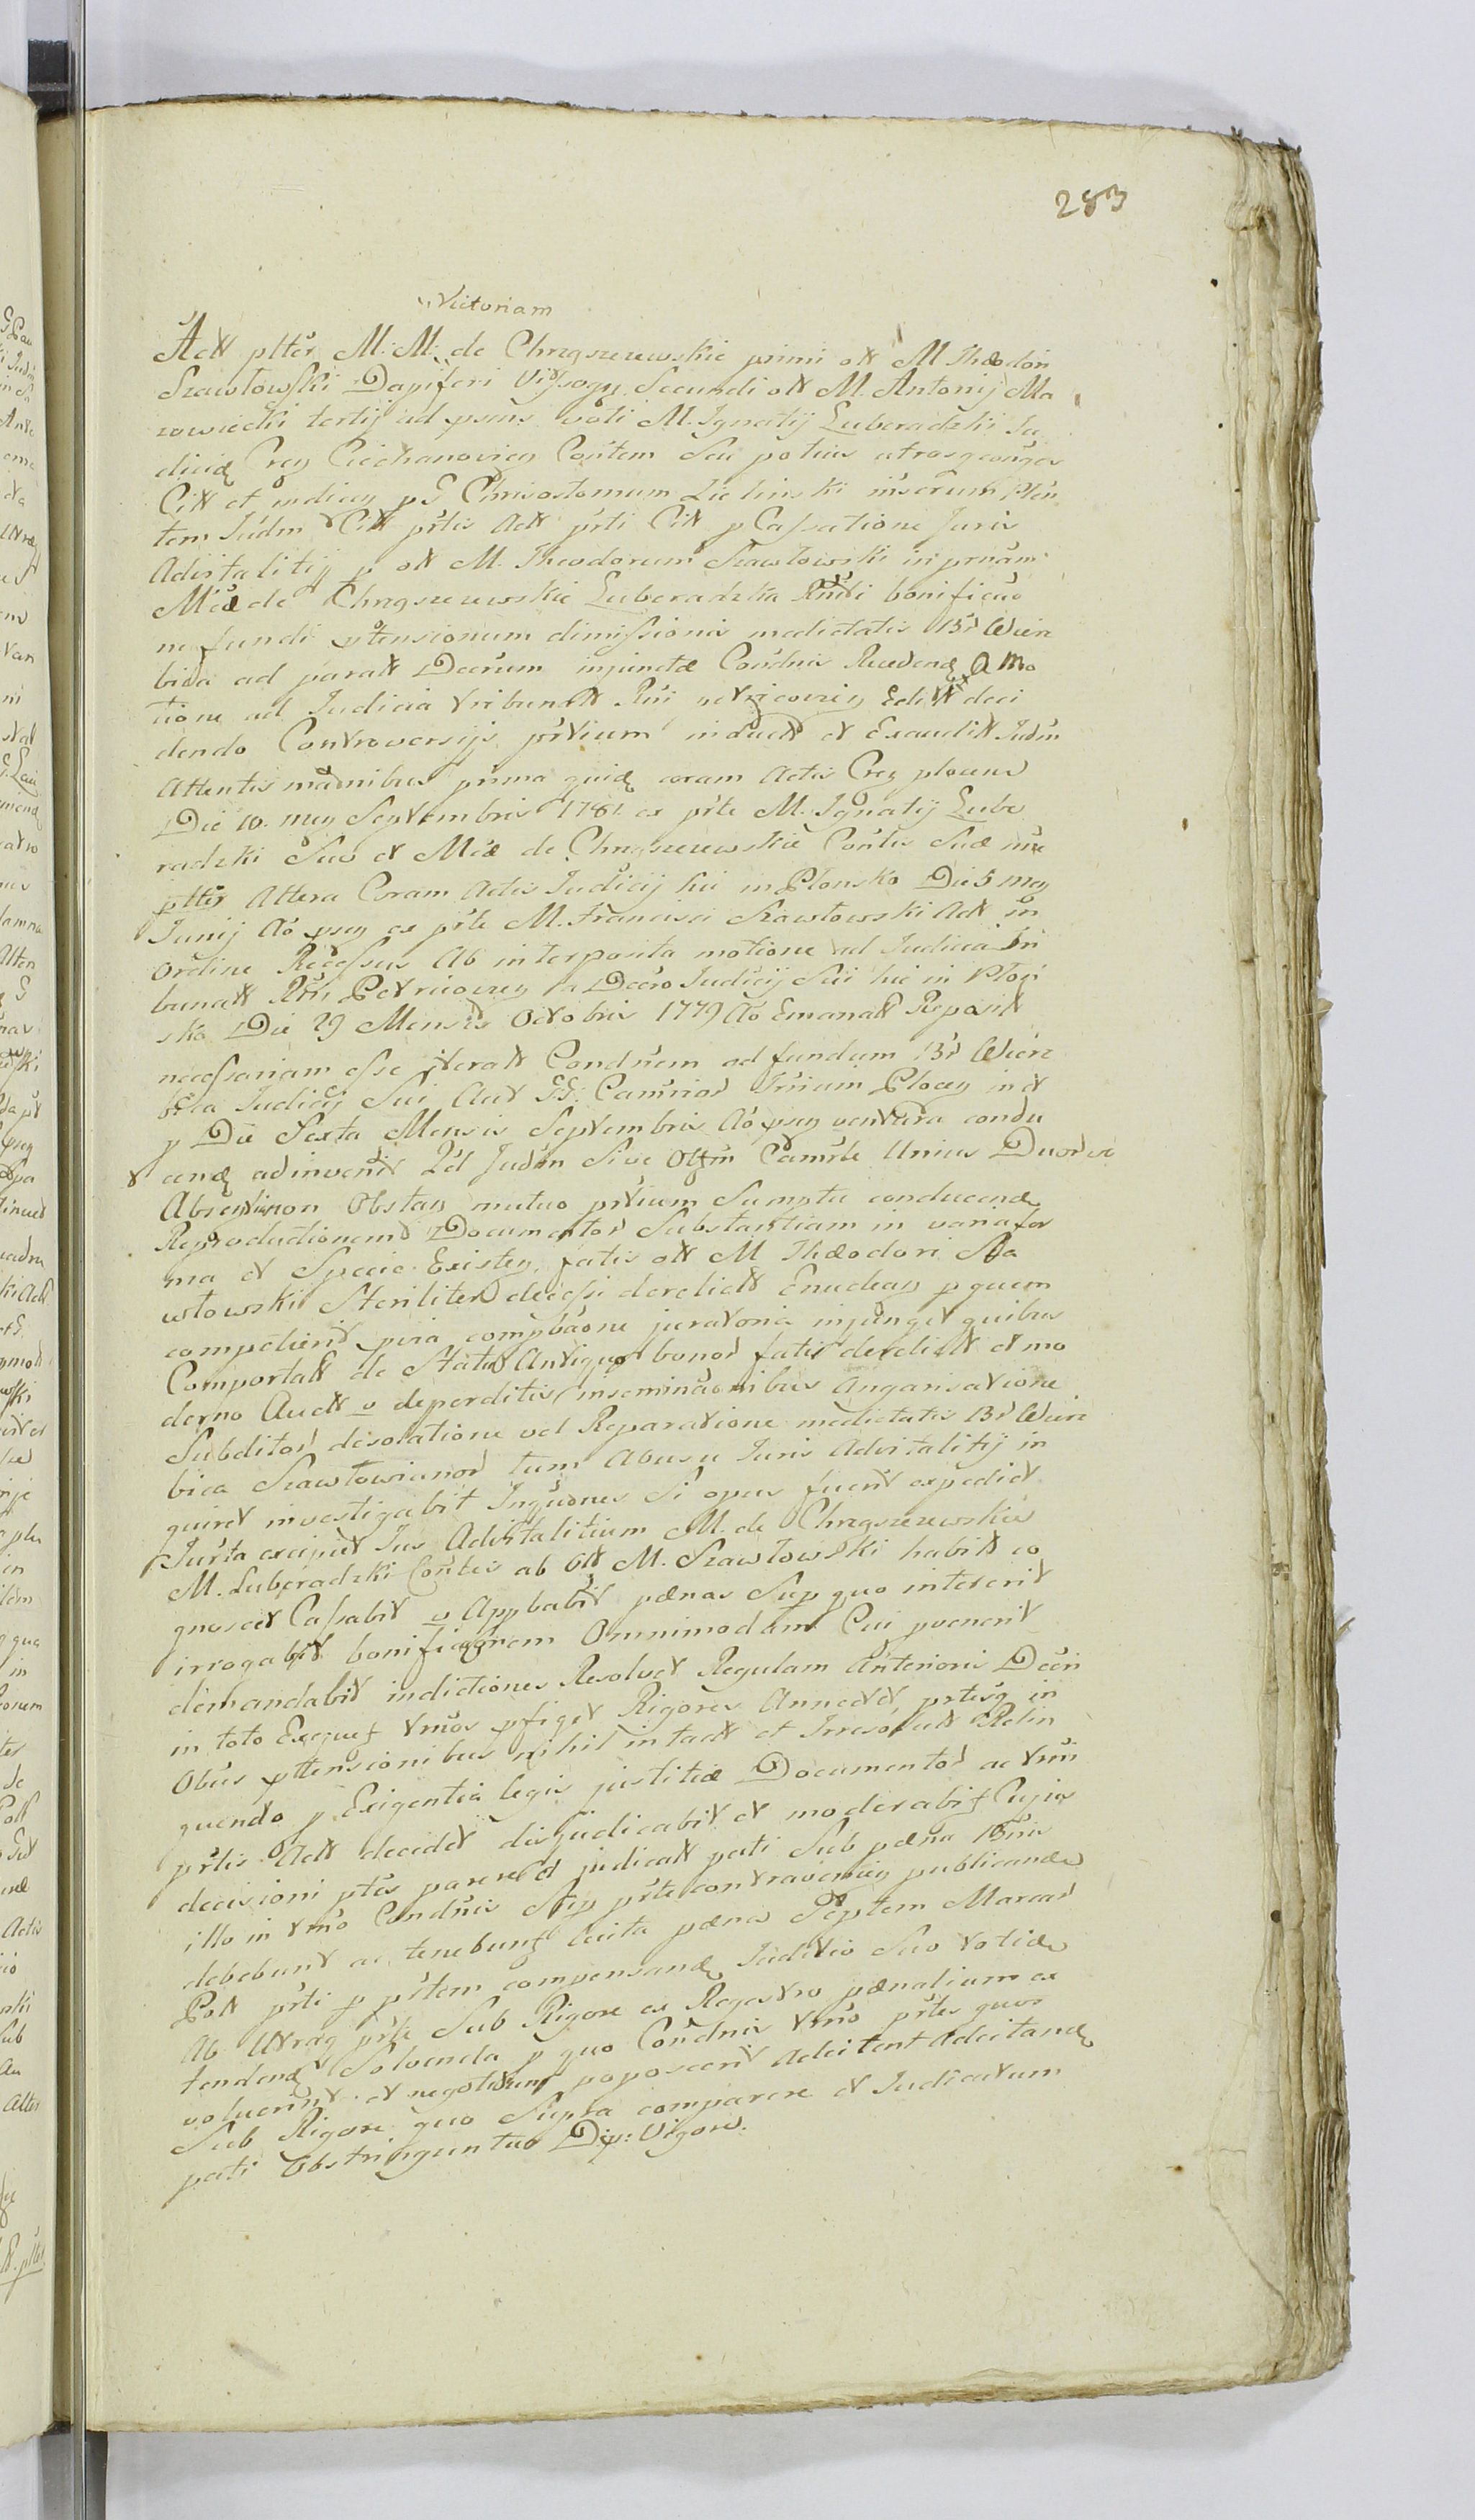 283
Victoriam
Actt ptter M: M: de Chrząszczewskie primi ott M. Theodori
Szawłowski Dapiferi Vissogy Secundi ott M. Antonij Ma
zowiecki tertij ad psens voti M. Ignatij Luberadzki Ju
dicis Crey Ciechanoviey Contem Seu potius utrosq conges
Citt et indicey p G Chrisostomum Zielinski
tem Judm Citt prtis Actt prti Citt p Cassatione Juris
Advitalitij p ott M. Theodorum Szawłowski in prnam
Mcæ de Chrząszczewskie Luberadzka bonificao
ne fundi ptensionum dimissionis medietatis Br Wierz
bica ad paratt Decrum injunctæ Condnis Recedendæ a Mo
tione ad Judicia Tribunatt Rni Petricoviey deci
dendo Controversijs prtium inductt et Exauditt Judm
Attentis prima quidæ coram Actis Crey plocens
Die 10. mey Septembris 1781 ex prte M. Ignatij Lube
radzki Suo et Mcæ de Chrząszczewskie Contis Suæ nne
ptter Altera Coram Actis Judicij hic in Plonsko Die 5 mey
Junij Ao psey ex prte M. Francisci Szawłowski Actt in
Ordine Recessus Ab interposita motione ad Judicia Tri
bunatt Rni Petricoviey a Decro Judicij Sui hic in Płoń
sko Die 29 Mensis Octobris 1779 Ao Emanatt Repositt
necessariam esse iteratt Condnem ad fundum Br Wierz
bica Judicij Sui Aut GG: Camrior Trrium Plocey in et
p Die Sexta Mensis Septembris Ao psey ventura condu
cendæ adinvenit Qd Judm Sive Offm Camrle Unius Duor ve
Absentia non Obstan mutuo prtium Sumptu conducendæ
Reproductionem Documentor Substantiam in varia for
ma et Specie Existey. fatis ott M Theodori Sza
włowski Steriliter decessi derelictt Enudean p quem
competierit pvia compbaone juratoria injunget quibus
Comportatt de Statu Antiquo bonor fatis derelictt et mo
derno Auctt v deperditis inseminaonibus Angarisatione
Subditor desolatione vel Reparatione medietatis Br Wierz
bica Szawłowianor tum Abusu Juris Advitalitij in
quiret investigabit Inquones Si opus fuerit expediet
Jurta excipiet Jus Advitalitium M. de Chrząszczewskie
M. Luberadzki Contis ab Ott M. Szawłowski habitt co
gnoscet Cassabit v Appbabit pænas Sup quo intererit
irrogabit bonificaonem Omnimodam Cui pvenerit
demandabit indictiones Resolvet Regulam Anterioris Decri
in toto Exequet tmos pfiget Rigores Annectet prtesq in
Obus pttensionibus nihil intactt et Irresolutt Relin
quendo p Exigentia legis justitiæ Documentor ac tmi
prtis Actt decidet disjudicabit et moderabit Cujus
decisioni ptes parere et judicatt pati Sub pæna Bnis
illo in tmo Condnis Sup prte contravenien publicandæ
debebunt ac tenebunt Citita pæna Septem Marcar
Pott prti p prtem compensandæ Judicio Suo totidæ
Ab Utraq prte Sub Rigore ex Regestro pænalium ex
tendendæ Solvenda p quo Condnis tmo prtes quos
voluerint et negotium poposcerit Adcitent Adcitandæ
Sub Rigore quo Supra comparere et Judicatum
pati Obstringuntur Dip: Vigore.